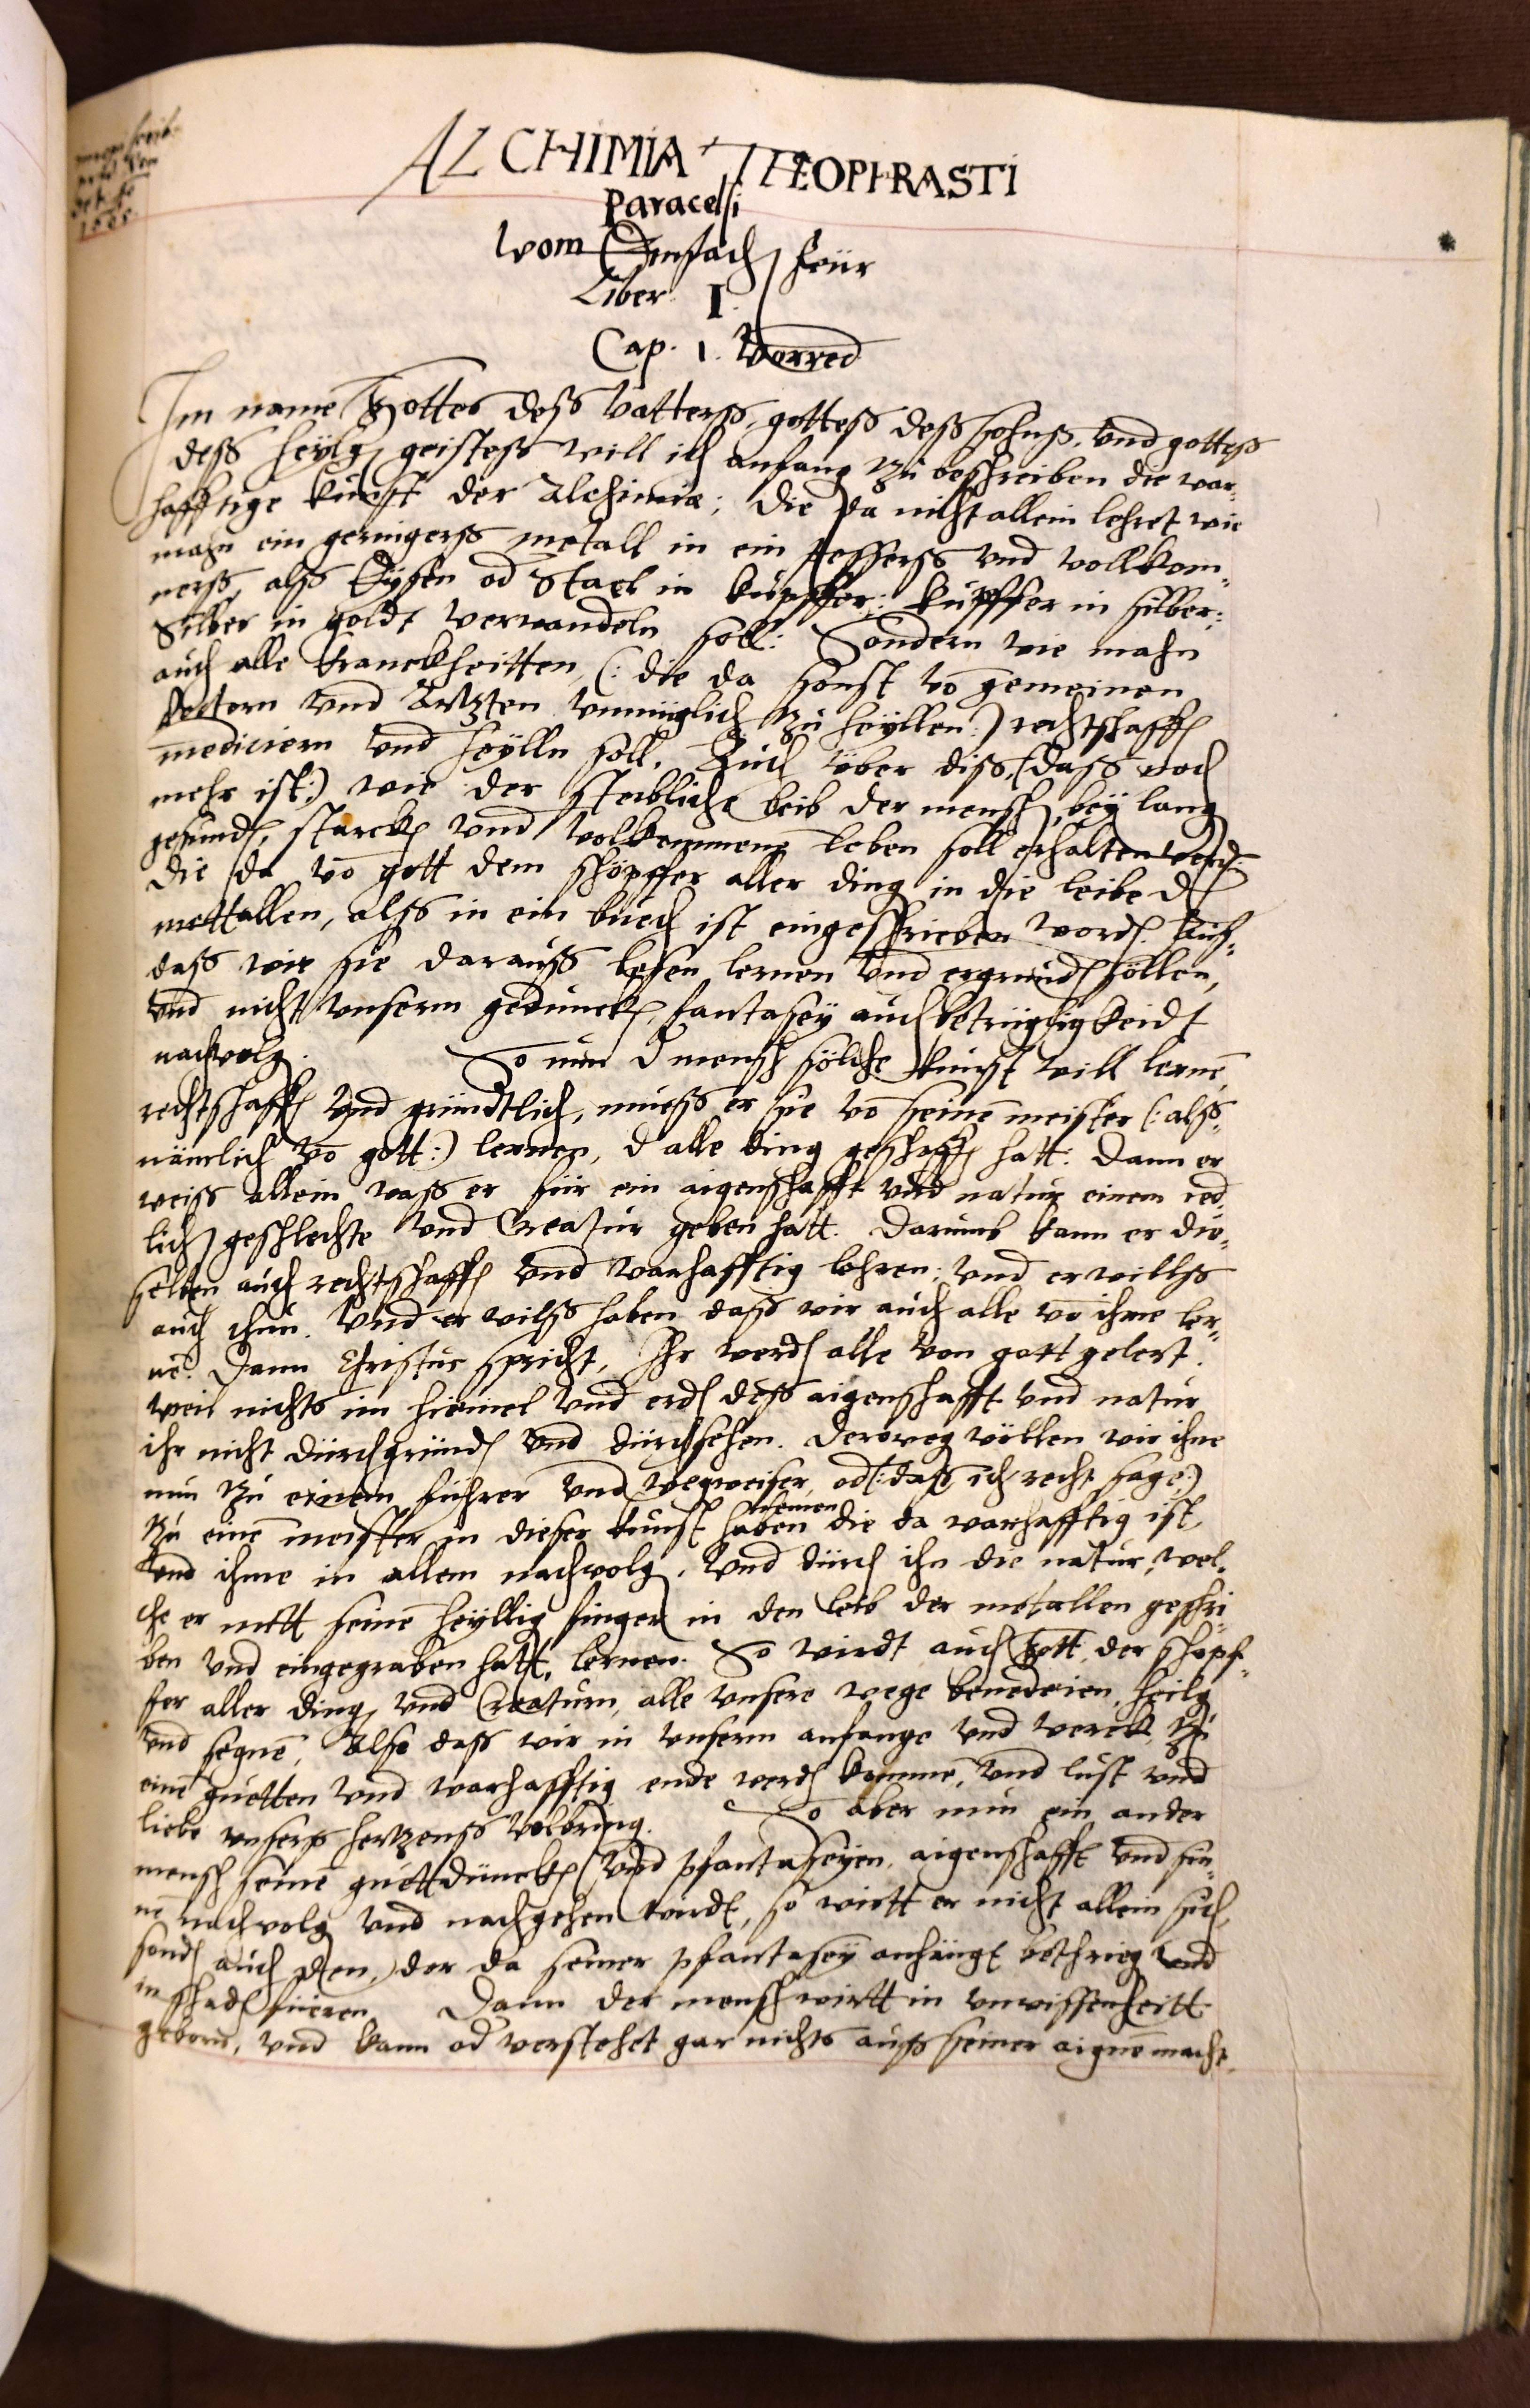 1585
ALCHIMIA THEOPHRASTI
Paracelsi
Vom Einfach feür
Liber I.
Cap. 1. Vorred
Im name Gottes deß Vatterß, gotteß deß sohnß, und gotteß
deß heÿlg geisteß will ich anfang zu beschreiben die war-
hafftige kunst der Alchimiæ; die da nicht allein lehret wie
mahn ein geringerß metall in ein besserß und vollkom-
nerß, alß Eÿsen od Stael in kupffer: kupffer in silber:
Silber in goldt verwandeln soll: Sondern wie mahn
auch alle kranckheitten, (: die da sonst vō gemeinen
doctorn und Artzten unmüglich zu heÿllen:) rechtschaffē
mediciern und heÿlln soll. Auch über diß, (daß noch
mehr ist:) wie der sterbliche leib der mensch, beÿ lang
gesundē, starckē und volkommenē leben soll erhalten werdē.
die da vō gott dem schöpffer aller ding in die leibe d
mettallen, alß in ein buech ist eingeschrieben wordē.
daß wir sie darauß lesen lernen und ergrundē söllen,
und nicht unserm gedunckē, fantaseÿ auch betrügligkeidt
nachvolg. So nun d mensch sölche kunst will lernē
rechtschaffē und gründtlich, mueß er sie vō seinē meister (: alß
nämlich vō gott:) lernen, d alle ding geschaffē hatt. Dann er
weiß allein waß er für ein aigenschafft und natur einem ied-
lichē geschlechte und Creatur geben hatt. Darumb kann er die-
selben auch rechtschaffē und warhafftig lehren: und er willß
auch thun. Und er wilß haben daß wir auch alle vō ihme ler-
nē. Dann Christus spricht, Ihr werdē alle von gott gelert.
weil nichts im himmel und erdē deß aigenschafft und natur
ihr nicht durchgründē und durchsehen. Derweg wöllen wir ihne
nun zu einem führer und wegweiser, od (: daß ich recht sage:)
zu einē meister in dieser kunst haben nemen die da warhafftig ist,
und ihme in allem nachvolg. Und durch ihn die natur, wel-
che er mitt seinē heÿllig finger in den leib der metallen geschri-
ben und eingegraben hatt, lernen. So wirdt auch Gott, der schöpf-
fer aller ding, und Creaturn, alle unsere wege benedeien, heilg
und segnē, Also daß wir in unserm anfange und werck, zu
einē guetten und warhafftig ende werdē kommē, und lust und
liebe unserß hertzenß volbring. So aber nun ein ander
mensch seinē guettdunckē und phantaseÿen, aigenschafft und sin-
nē nachvolg und nachgehen wurdt, so wirtt er nicht allein sich,
sondē auch den, der da seiner phantaseÿ anhängt bethrieg und
in schadē füeren. Dann der mensch wirtt in unwissenheitt
geborn, und kann od verstehet gar nichts auß seiner aignē macht.